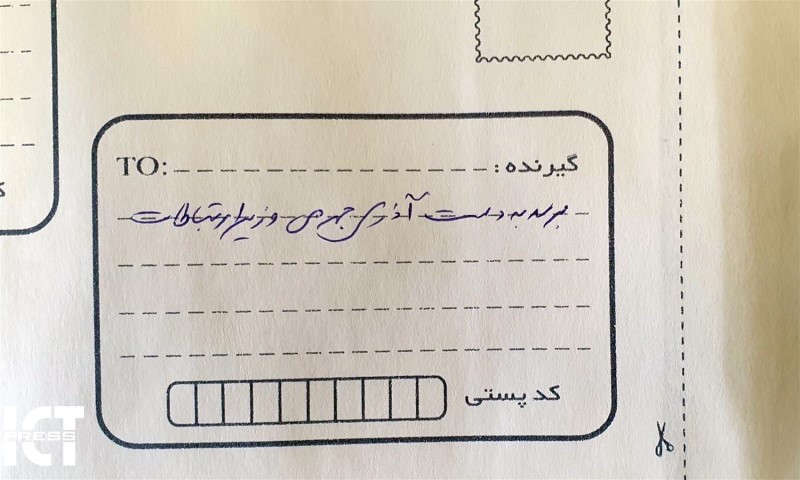 گیرنده : TO:
برسد به دست آذری جهرمی وزیر ارتباطات
کد پستی
ICT
PRESS